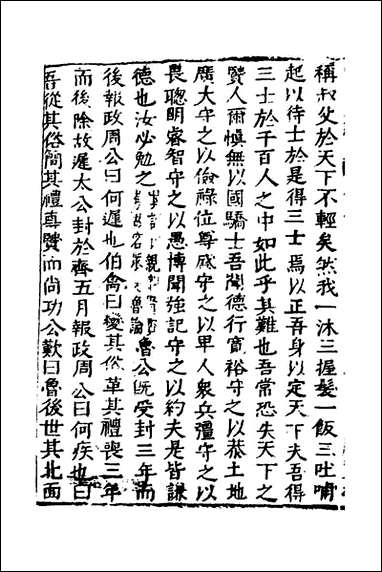 稱叔父於天下不輕矣然我一沐三握髮一飯三吐哺
起以待士於是得三士焉以正吾身以定天下夫吾得
三士於千百人之中如此乎其難也吾常恐失天下之
賢人爾慎無以國驕士吾聞德行寬裕守之以恭土地
廣大守之以儉祿位尊盛守之以卑人衆兵彊守之以
畏聰明睿智守之以愚博聞強記守之以約夫是皆謙
德也汝必勉之魯公既受封三年而
後報政周公曰何遲也伯禽曰變其俗革其禮喪三年
而後除故遲太公封於齊五月報政周公曰何疾也曰
吾從其俗簡其禮尊賢而尚功公歎曰魯後世其北面